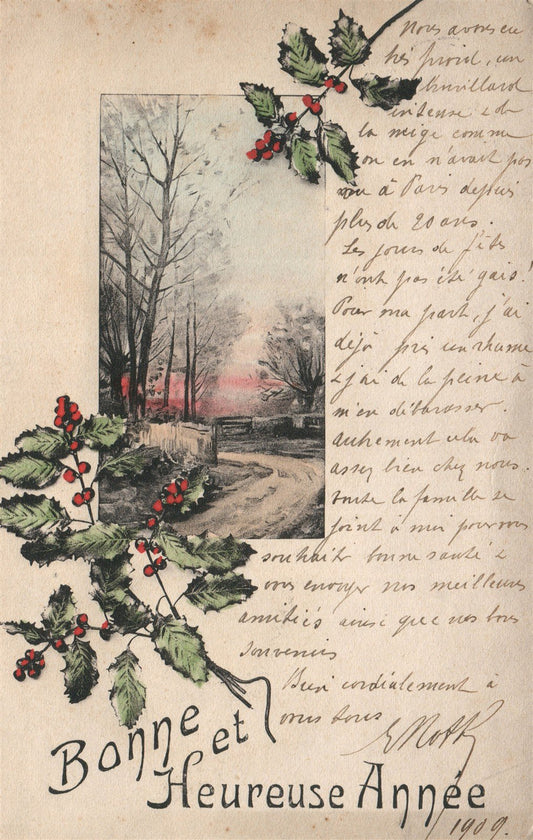 Nous avons eu
très froid, un
brouillard
intense & de
la neige comme
on en n'avait pas
vu à Paris depuis
plus de 20 ans.
Les jours de fêtes
n'ont pas été gais!
Pour ma part, j'ai
déjà pris un rhume
& j'ai de la peine à
m'en débarasser
autrement cela va
assez bien chez nous.
toute la famille se
joint à moi pour vous
souhaiter bonne santé &
vous envoyer nos meilleures
amitiés ainsi que nos bons
souvenirs
Bien cordialement à
vous tous
Bonne et
Heureuse Année
1909.